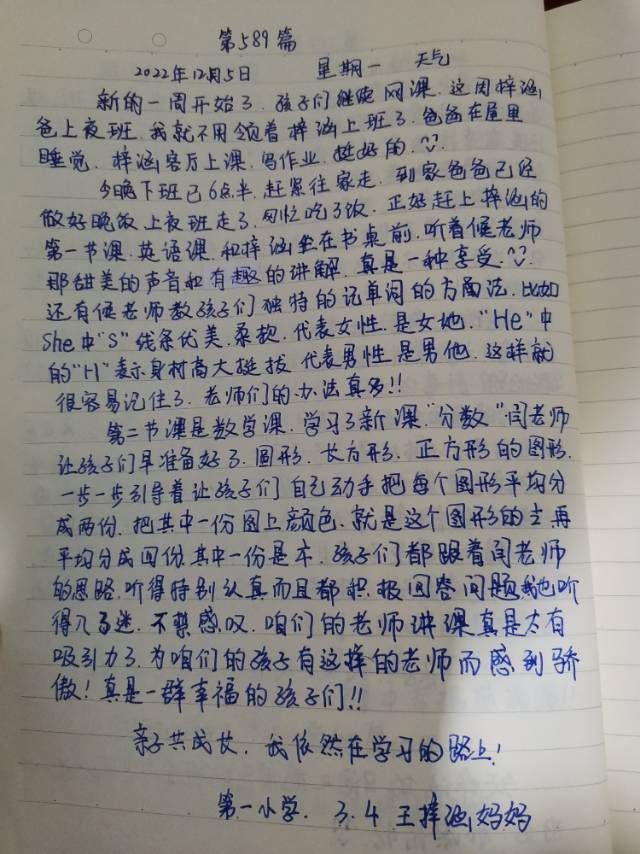 第589篇
2022年12月5日 星期一 天气
新的一周开始了.孩子们继续网课.这周梓涵
爸上夜班.我就不用领着梓涵上班了.爸爸在屋里
睡觉.梓涵客厅上课.写作业.挺好的.
今晚下班已6点半.赶紧往家走.到家爸爸已经
做好晚饭上夜班走了.匆忙吃了饭.正好赶上梓涵的
第一节课.英语课.和梓涵坐在书桌前.听着侯老师
那甜美的声音和有趣的讲解.真是一种享受.
还有侯老师教孩子们独特的记单词的方法.比如
She中"S"线条优美.柔软.代表女性.是女她."He"中
的"H"表示身材高大挺拔 代表男性是男他.这样就
很容易记住了.老师们的办法真多!!
第二节课是数学课.学习了新课."分数"闫老师
让孩子们早准备好了.圆形.长方形.正方形的图形.
一步一步引导着让孩子们自己动手把每个图形平均分
成两份.把其中一份图上颜色.就是这个图形的½再
平均分成四份.其中一份是¼.孩子们都跟着闫老师
的思路.听得特别认真而且都积极回答问题.我也听
得入了迷.不禁感叹.咱们的老师讲课真是太有
吸引力了.为咱们的孩子有这样的老师而感到骄
傲!真是一群幸福的孩子们!!
亲子共成长.我依然在学习的路上!
第一小学.3.4王梓涵妈妈